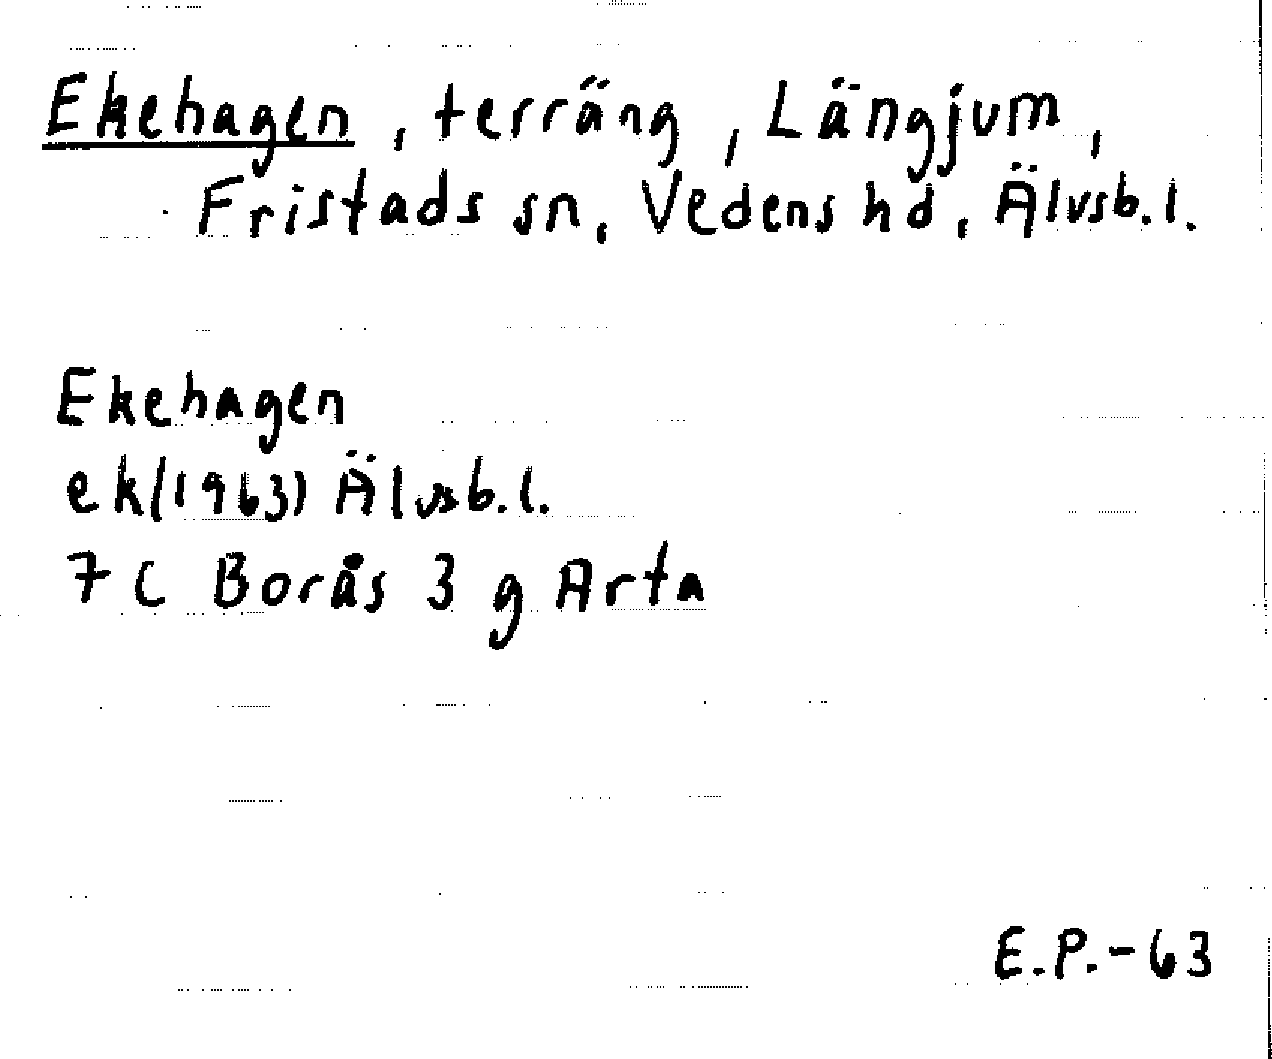 Ekehagen, terräng, Längjum,
Fristads sn, Vedens hd, Älvsb.l.
Ekehagen
ek(1963) Älvsb.l.
7 C Borås 3 g Arta
E.P.-63